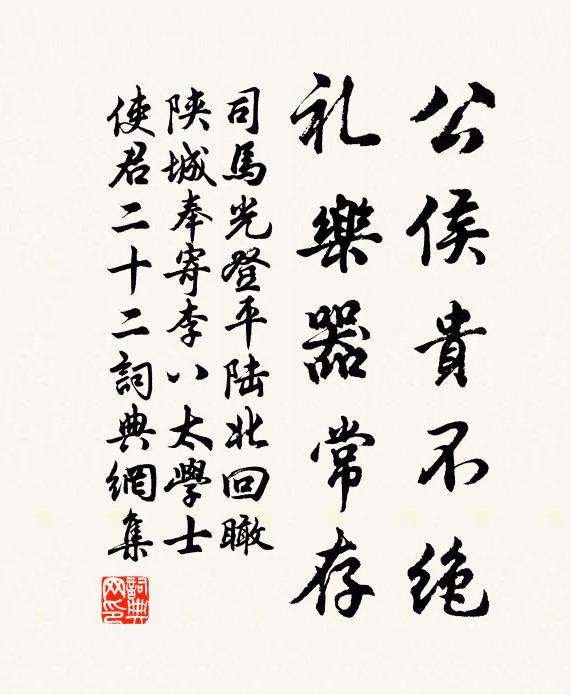 公侯貴不絶
礼樂器常存
司馬光登平陆北回瞰
陝城奉寄李八太學士
使君二十二詞典網集
詞典网印